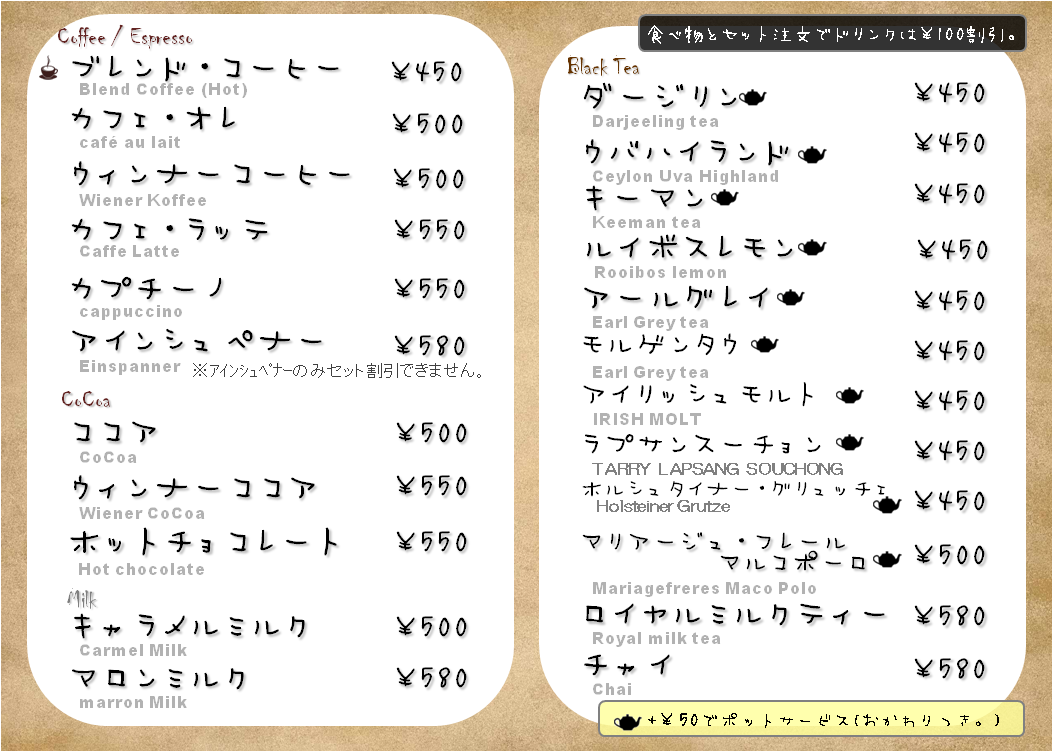 Coffee / Espresso
ブレンド・コーヒー ¥450
Blend Coffee (Hot)
カフェ・オレ ¥500
café au lait
ウィンナーコーヒー ¥500
Wiener Koffee
カフェ・ラッテ ¥550
Caffe Latte
カプチーノ ¥550
cappuccino
アインシュペナー ¥580
Einspanner ※アインシュペナーのみセット割引できません。
CoCoa
ココア ¥500
CoCoa
ウィンナーココア ¥550
Wiener CoCoa
ホットチョコレート ¥550
Hot chocolate
Milk
キャラメルミルク ¥500
Carmel Milk
マロンミルク ¥580
marron Milk
食べ物とセット注文でドリンクは¥100割引。
Black Tea
ダージリン ¥450
Darjeeling tea
ウバハイランド ¥450
Ceylon Uva Highland
キーマン ¥450
Keeman tea
ルイボスレモン ¥450
Rooibos lemon
アールグレイ ¥450
Earl Grey tea
モルゲンタウ ¥450
Earl Grey tea
アイリッシュモルト ¥450
IRISH MOLT
ラプサンスーチョン ¥450
TARRY LAPSANG SOUCHONG
ホルシュタイナー・グリュッチェ ¥450
Holsteiner Grutze
マリアージュ・フレール
マルコポーロ ¥500
Mariagefreres Maco Polo
ロイヤルミルクティー ¥580
Royal milk tea
チャイ ¥580
Chai
+¥50でポットサービス(おかわりつき。)